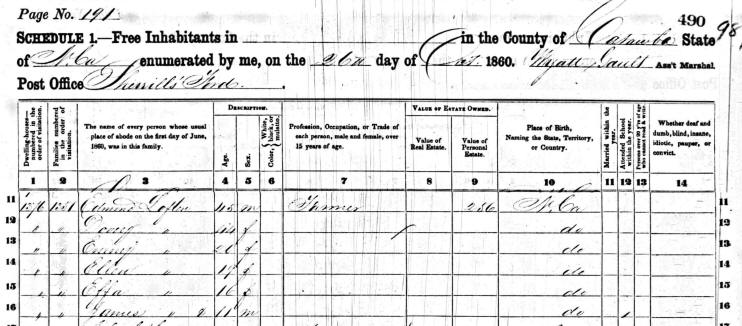 Page No. 191
490
98
SCHEDULE 1.—Free Inhabitants in in the County of Catawba State
of N. Ca enumerated by me, on the day of Oct. 1860. Wyatt Ass't Marshal.
Post Office Sherrill's Ford.
Dwelling-houses— numbered in the order of visitation.
Families numbered in the order of visitation.
The name of every person whose usual place of abode on the first day of June, 1860, was in this family.
DESCRIPTION.
Age.
Sex.
Color, White, black, or mulatto.
Profession, Occupation, or Trade of each person, male and female, over 15 years of age.
VALUE OF ESTATE OWNED.
Value of Real Estate.
Value of Personal Estate.
Place of Birth, Naming the State, Territory, or Country.
Married within the year.
Attended School within the year.
Persons over 20 y'rs of age who cannot read & write.
Whether deaf and dumb, blind, insane, idiotic, pauper, or convict.
1 2 3 4 5 6 7 8 9 10 11 12 13 14
11 Edmund Lofton 45 m Farmer 256 N. Ca 11
12 " " " 44 f do
13 " " " f do 13
14 " " " f do 14
15 " " Effa " 16 f do 15
16 " " James " 11 m do 16